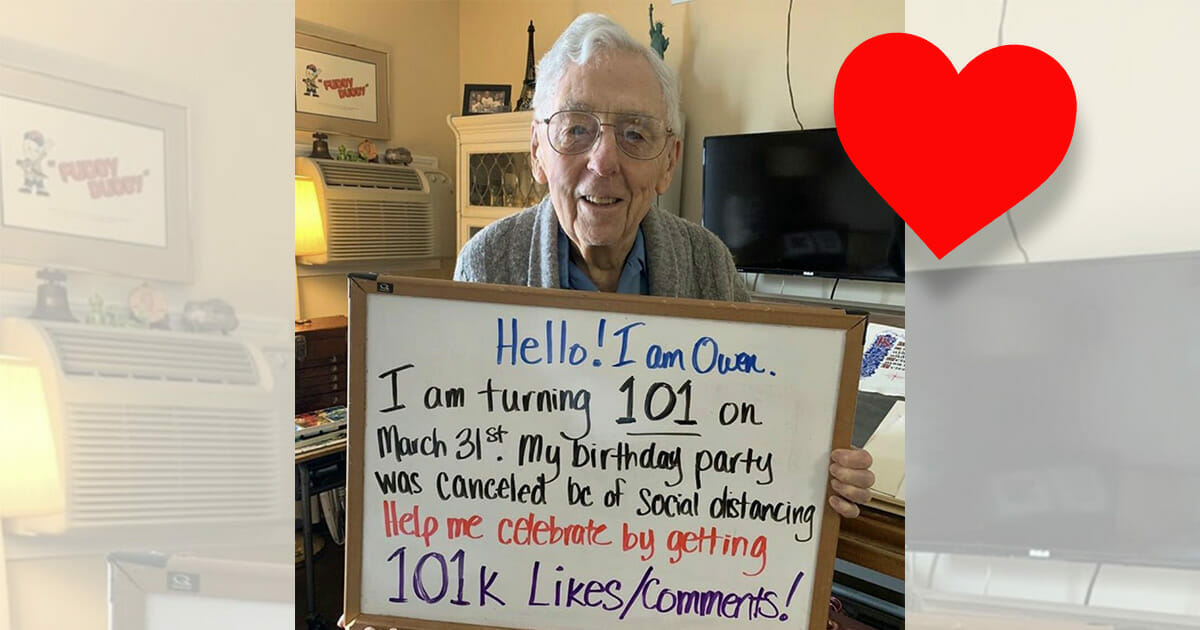 "FUDDY
DUDDY"
Hello! I am Owen.
I am turning 101 on
March 31st. My birthday party
was canceled bc of social distancing
Help me celebrate by getting
101k Likes/Comments!
"FUDDY
DUDDY"